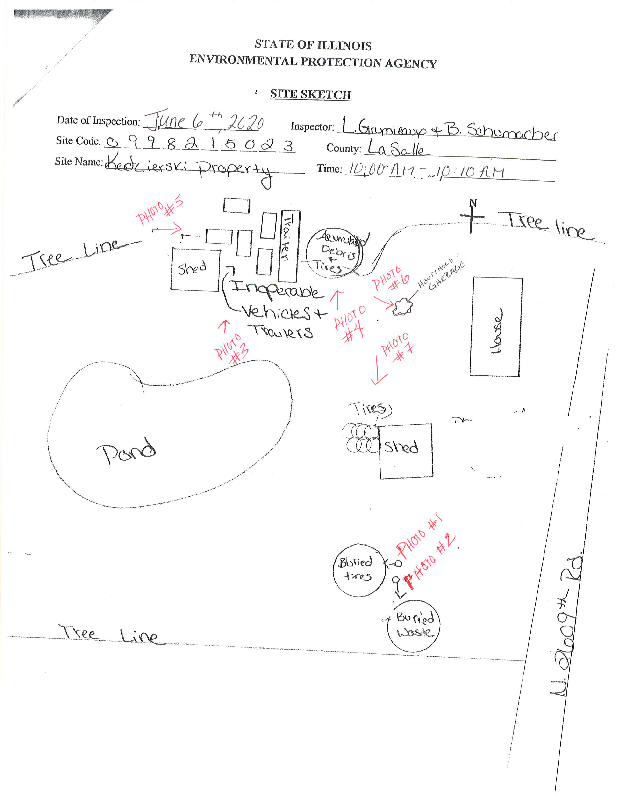 STATE OF ILLINOIS
ENVIRONMENTAL PROTECTION AGENCY
SITE SKETCH
Date of Inspection: June 6th, 2020
Inspector: L. & B. Schumacher
Site Code: 0 9 9 8 2 1 5 0 2 3
County: LaSalle
Site Name: Kedzierski Property
Time: 10:00 AM - 10:10 AM
PHOTO #5
N
Tree line
Tree Line
Shed
Trailer
Debris
+
Tires
Inoperable
Vehicles +
Trailers
PHOTO #3
PHOTO #4
PHOTO #6
HOUSEHOLD
GARBAGE
PHOTO #7
House
Tires
Shed
Pond
PHOTO #1
PHOTO #2
Buried
tires
Buried
Waste
Tree Line
Rd.